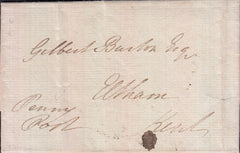 Gilbert Burton Esqr
Eltham
Penny
Post
Kent